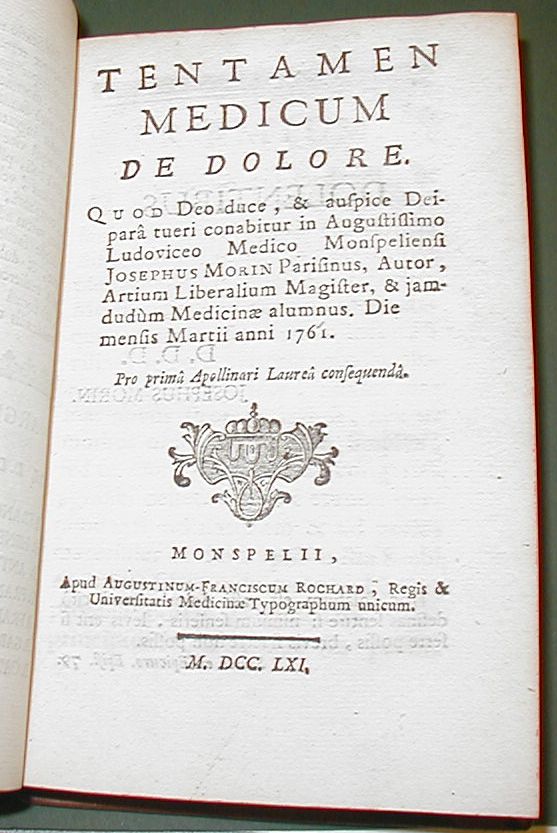 TENTAMEN
MEDICUM
DE DOLORE.
QUOD Deo duce, & auſpice Dei-
parâ tueri conabitur in Auguſtiſſimo
Ludoviceo Medico Monſpelienſi
JOSEPHUS MORIN Pariſinus, Autor,
Artium Liberalium Magiſter, & jam-
dudùm Medicinæ alumnus. Die
menſis Martii anni 1761.
Pro primâ Apollinari Laureâ conſequendâ.
MONSPELII,
Apud AUGUSTINUM-FRANCISCUM ROCHARD, Regis &
Univerſitatis Medicinæ Typographum unicum.
M. DCC. LXI.